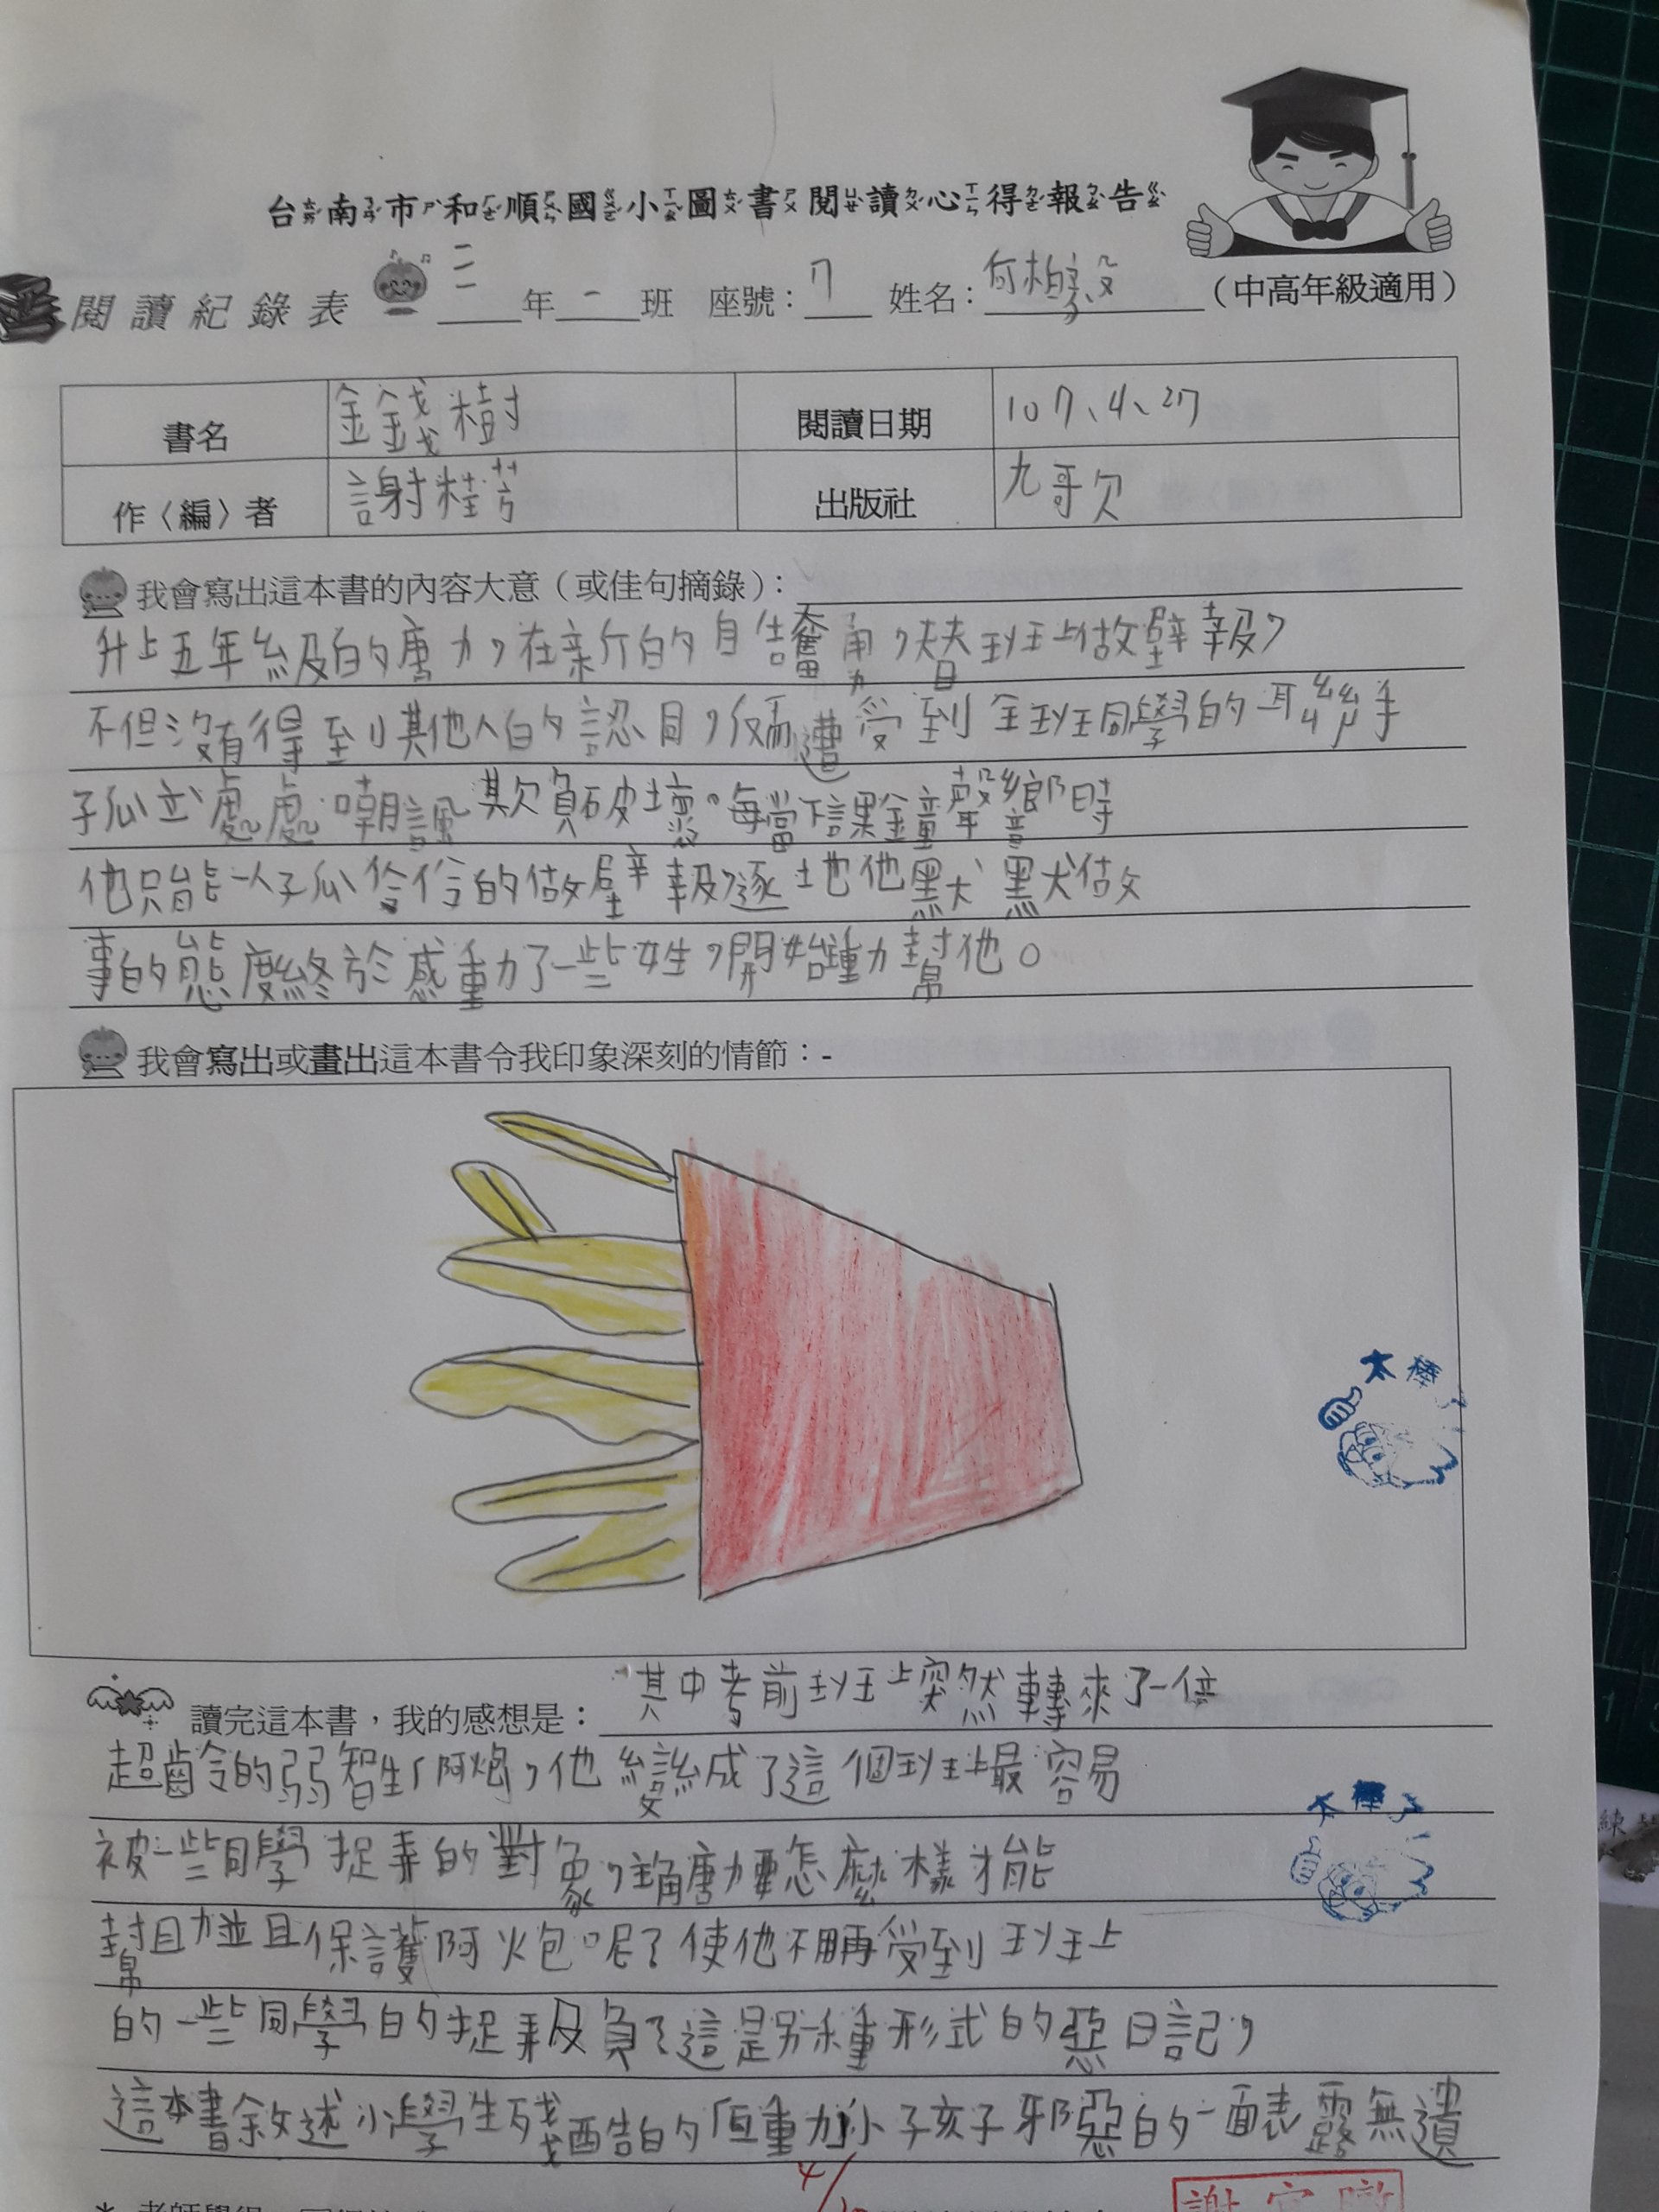 台南市和順國小圖書閱讀心得報告
閱讀紀錄表 三年一班 座號：7 姓名：何柏毅 （中高年級適用）
書名 金錢樹 閱讀日期 107、4、27
作〈編〉者 謝桂芳 出版社 九歌
我會寫出這本書的內容大意（或佳句摘錄）：
升上五年級的唐力，在新的自告奮勇，替班上做壁報，
不但沒有得到其他人的認同，反而遭受到全班同學的聯手
孤立處處嘲諷欺負破壞。每當下課鐘聲響時
他只能一人孤伶伶的做壁報，逐地他默默做
事的態度終於感動了一些女生，開始動幫他。
我會寫出或畫出這本書令我印象深刻的情節：-
太棒了
讀完這本書，我的感想是： 其中考前班上突然轉來了一位
超齡的弱智生「阿炮，他變成了這個班上最容易
太棒了
被一些同學捉弄的對象，主角唐力要怎麼樣才能
幫助並且保護阿炮呢？使他不再受到班上
的一些同學的捉弄及負？這是另種形式的惡日記，
這本書敘述小學生殘酷的 小孩子邪惡的一面表露無遺
4/